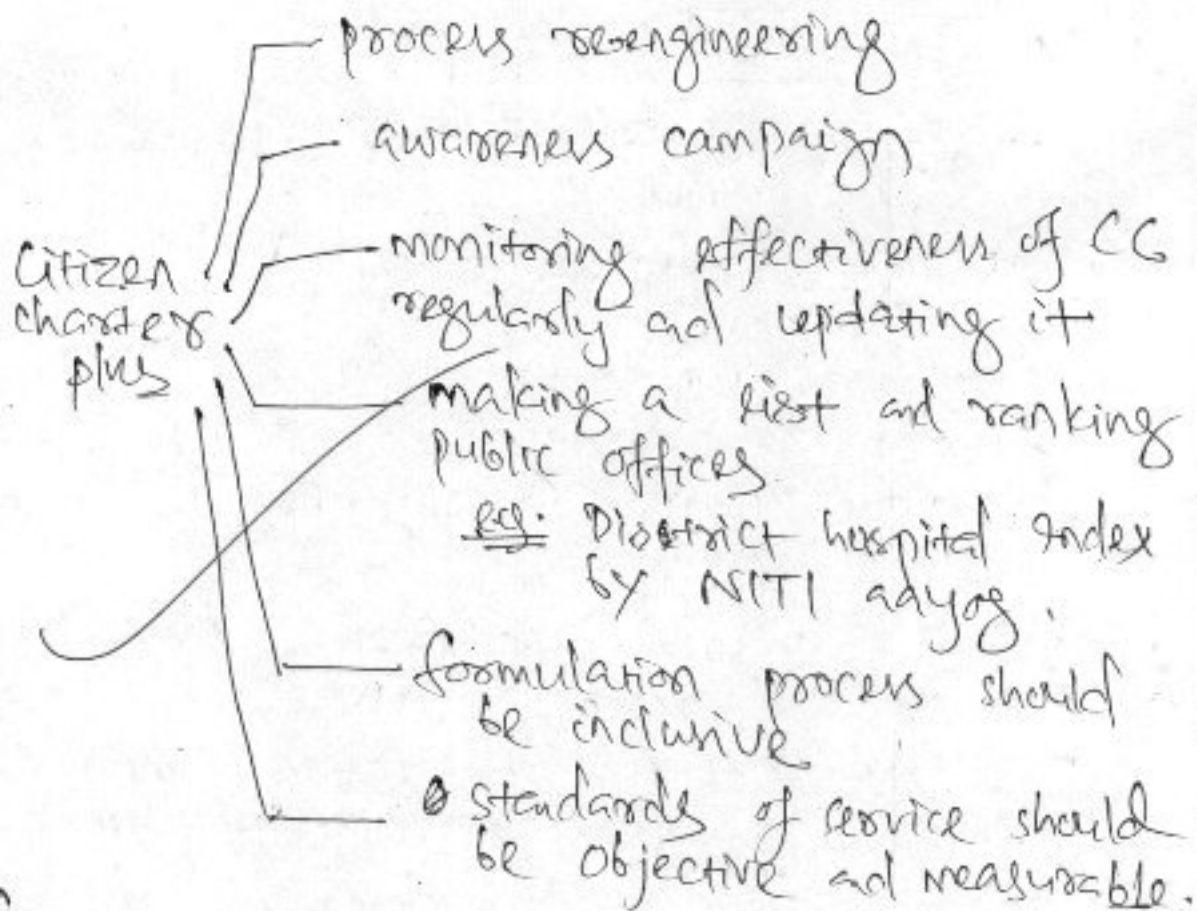 process reengineering
awareness campaign
Citizen
charter
plus
monitoring effectiveness of CC
regularly and updating it
making a list and ranking
public offices
eg. District hospital Index
by NITI aayog.
formulation process should
be inclusive
standards of service should
be objective and measurable.